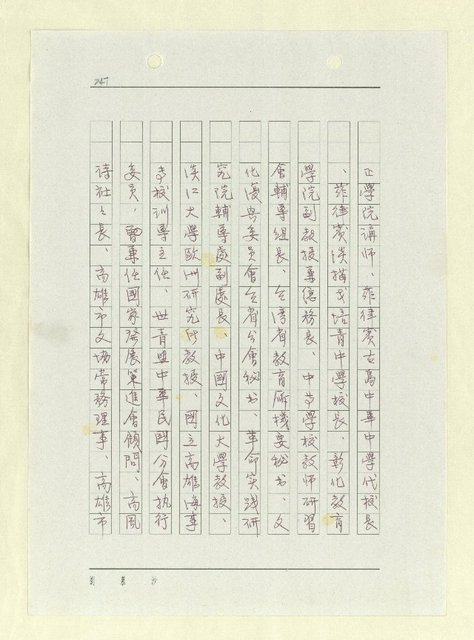 247
正學院講師、菲律賓古島中華中學代校長
、菲律賓淡描戈培青中學校長、彰化教育
學院副教授專德務長、中等學校教師研習
會輔導組長、台灣省教育所機要秘书、文
化復興委員會台省分會秘书、革命实践研
究院輔導處副處長、中國文化大學教授、
淡江大學歐洲研究所教授、國立高雄海事
專校訓導主任、世青盟中華民國分會执行
委员,曾兼任國家發展策進會顧問、高風
詩社社長、高雄市文協常務理事、高雄市
劉慕沙